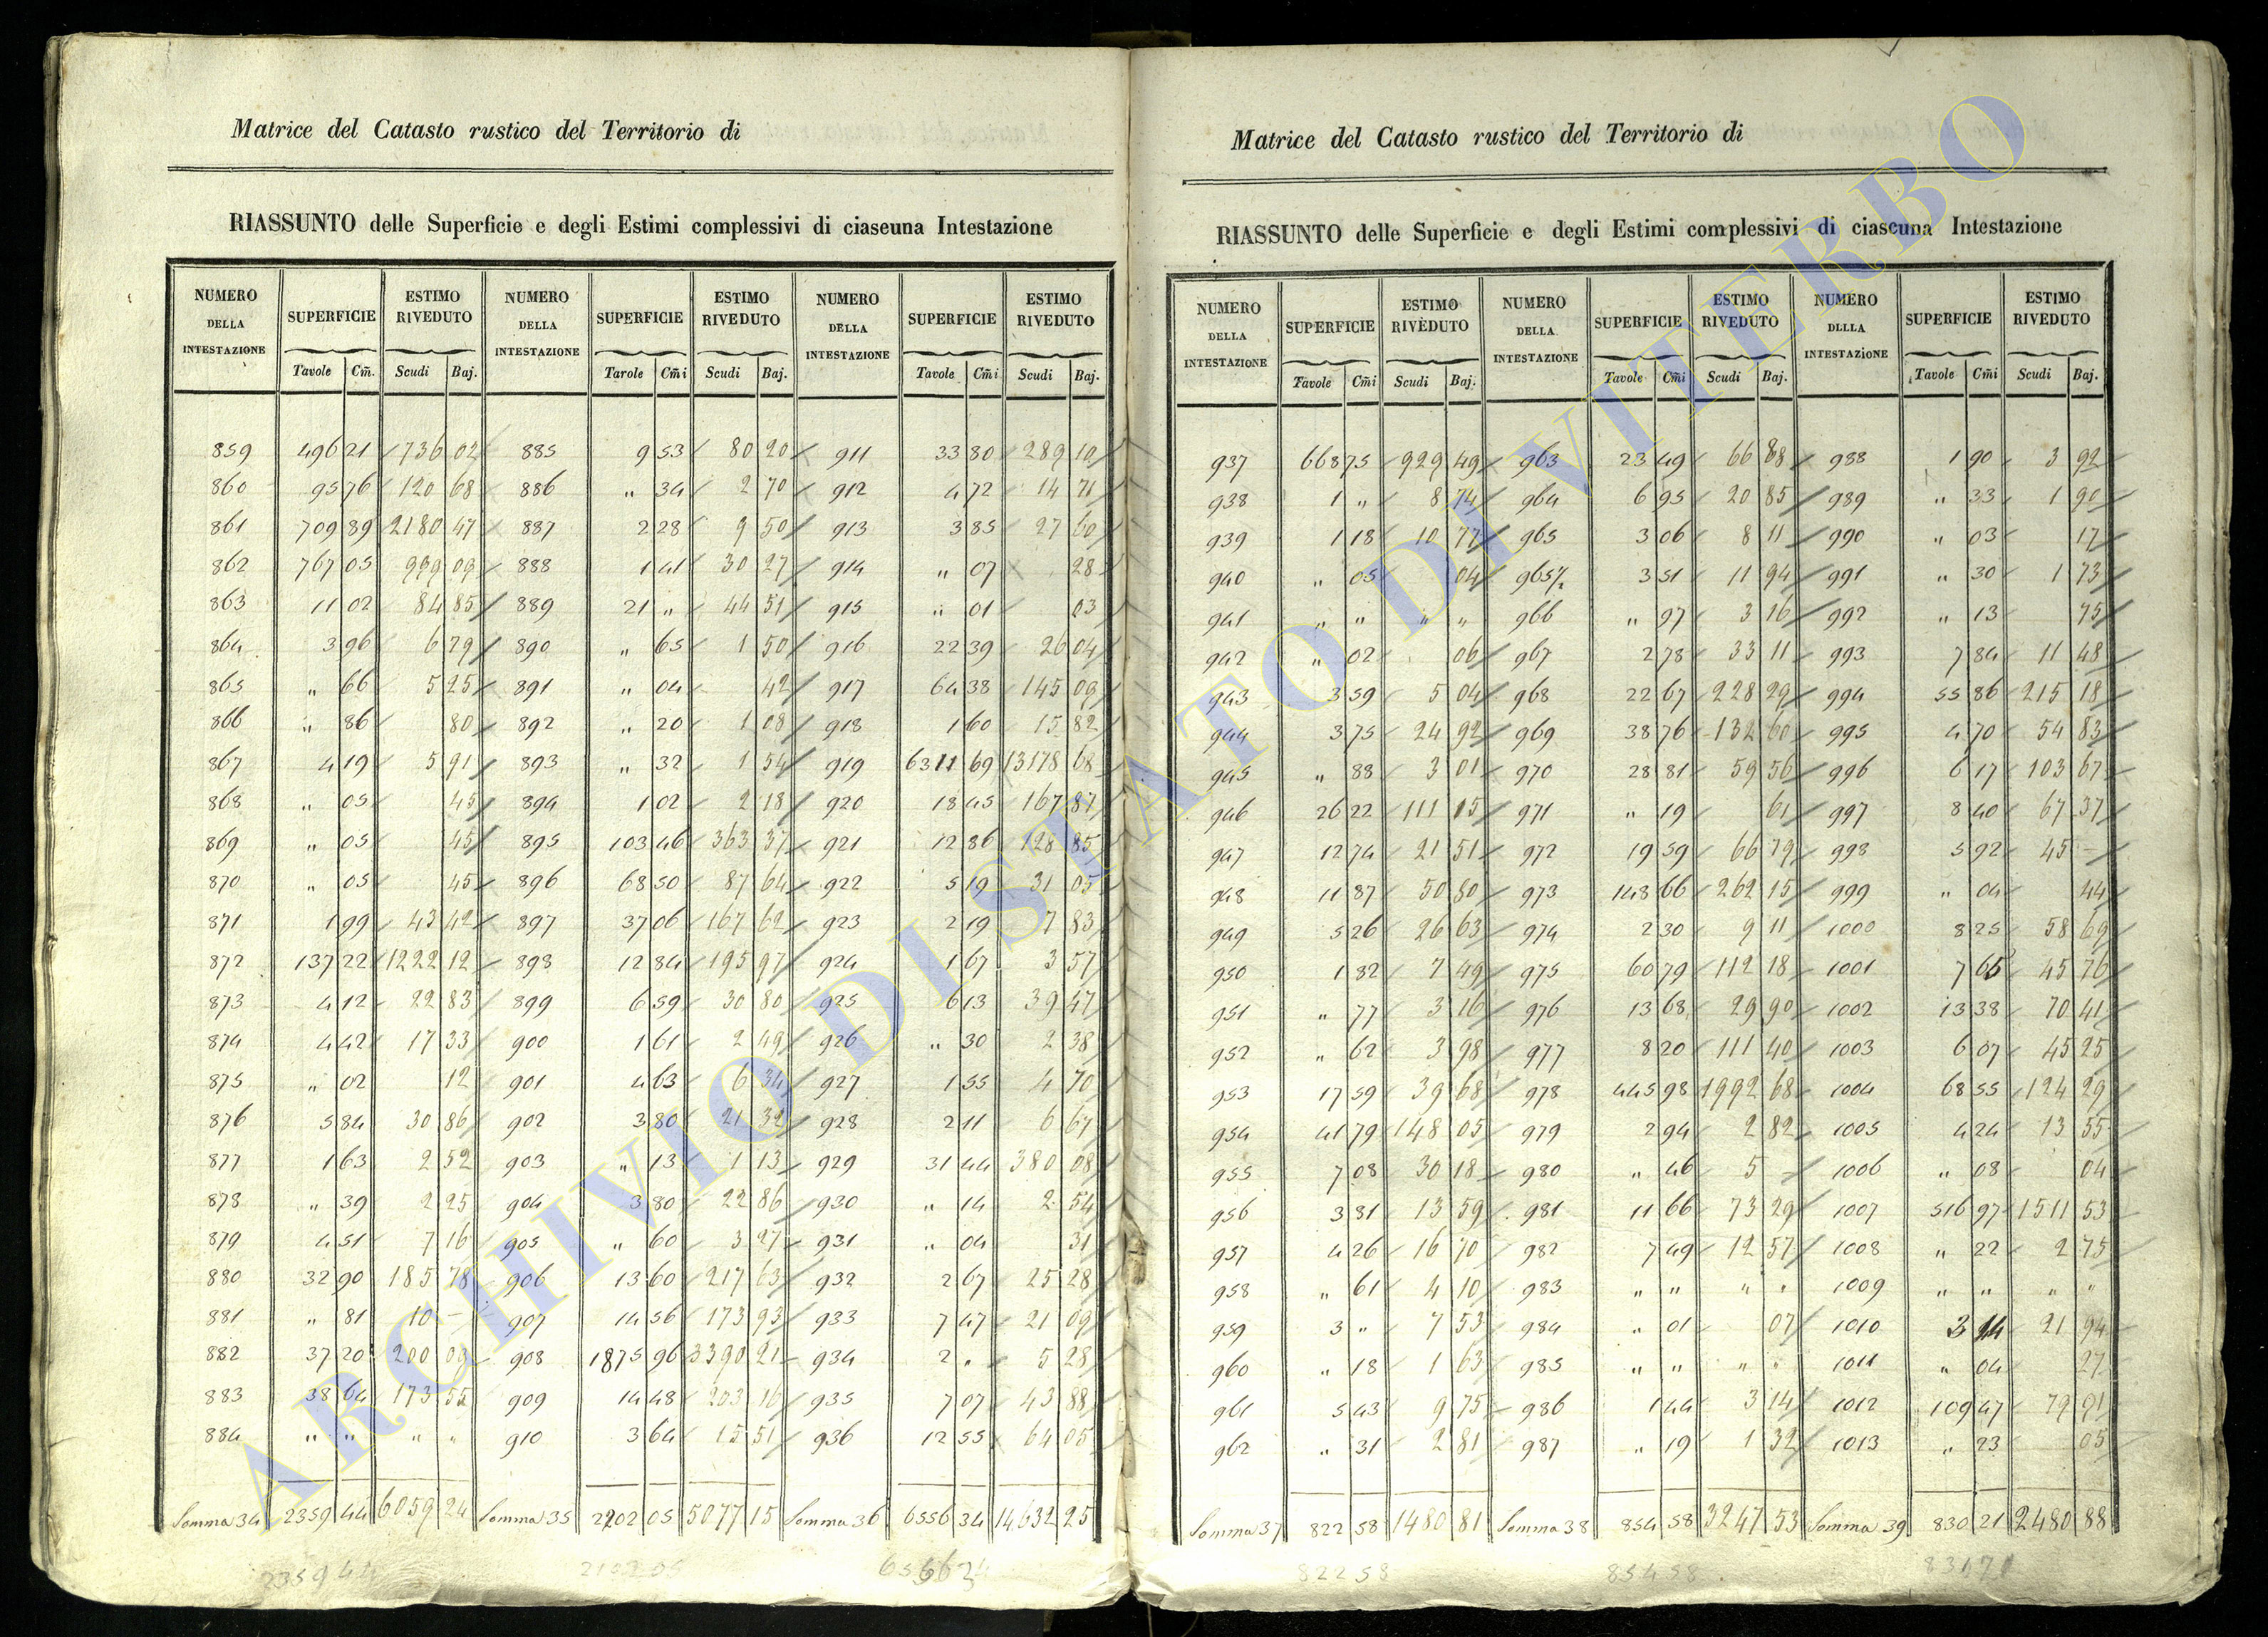 Matrice del Catasto rustico del Territorio di
RIASSUNTO delle Superficie e degli Estimi complessivi di ciaseuna Intestazione
NUMERO DELLA INTESTAZIONE SUPERFICIE ESTIMO RIVEDUTO NUMERO DELLA INTESTAZIONE SUPERFICIE ESTIMO RIVEDUTO NUMERO DELLA INTESTAZIONE SUPERFICIE ESTIMO RIVEDUTO
Tavole Cm̃. Scudi Baj. Tarole Cm̃i Scudi Baj. Tavole Cm̃i Scudi Baj.
859 496 21 736 02 885 9 53 80 20 911 33 80 289 10
860 95 76 120 68 886 " 34 2 70 912 4 72 14 71
861 709 89 2180 47 887 2 28 9 50 913 3 85 27 60
862 767 05 999 09 888 1 41 30 27 914 " 07 28
863 11 02 84 85 889 21 " 44 51 915 " 01 03
864 3 96 6 79 890 " 65 1 50 916 22 39 26 04
865 " 66 5 25 891 " 04 42 917 64 38 145 09
866 " 86 80 892 " 20 1 08 918 1 60 15 82
867 4 19 5 91 893 " 32 1 54 919 6311 69 13178 68
868 " 05 45 894 1 02 2 18 920 18 45 167 87
869 " 05 45 895 103 46 363 37 921 12 86 128 85
870 " 05 45 896 68 50 87 64 922 5 19 31 05
871 1 99 43 42 897 37 06 167 62 923 2 19 7 83
872 137 22 1222 12 898 12 84 195 97 924 1 67 3 57
873 4 12 22 83 899 6 59 30 80 925 6 13 39 47
874 4 42 17 33 900 1 61 2 49 926 " 30 2 38
875 " 02 12 901 4 63 6 34 927 1 55 4 70
876 5 84 30 86 902 3 80 21 32 928 2 11 6 67
877 1 63 2 52 903 " 13 1 13 929 31 44 380 08
878 " 39 2 25 904 3 80 22 86 930 " 14 2 54
879 4 51 7 16 905 " 60 3 27 931 " 04 31
880 32 90 185 78 906 13 60 217 63 932 2 67 25 28
881 " 81 10 - 907 14 56 173 93 933 7 47 21 09
882 37 20 200 03 908 1875 96 3390 21 934 2 " 5 28
883 38 64 173 55 909 14 48 203 16 935 7 07 43 88
884 " " " " 910 3 64 15 51 936 12 55 64 05
Somma 34 2359 44 6059 24 Somma 35 2202 05 5077 15 Somma 36 6556 34 14632 25
2359 44
Matrice del Catasto rustico del Territorio di
RIASSUNTO delle Superficie e degli Estimi complessivi di ciascuna Intestazione
NUMERO DELLA INTESTAZIONE SUPERFICIE ESTIMO RIVEDUTO NUMERO DELLA INTESTAZIONE SUPERFICIE ESTIMO RIVEDUTO NUMERO DLLLA INTESTAZIONE SUPERFICIE ESTIMO RIVEDUTO
Tavole Cm̃i Scudi Baj. Tavole Cm̃i Scudi Baj. Tavole Cm̃i Scudi Baj.
937 668 75 929 49 963 23 49 66 88 988 1 90 3 92
938 1 " 8 74 964 6 95 20 85 989 " 33 1 90
939 1 18 10 77 965 3 06 8 11 990 " 03 17
940 " 05 04 965½ 3 51 11 94 991 " 30 1 73
941 " " " " 966 " 97 3 16 992 " 13 75
942 " 02 06 967 2 78 33 11 993 7 84 11 48
943 3 59 5 04 968 22 67 228 29 994 55 86 215 18
944 3 75 24 92 969 38 76 132 60 995 4 70 54 83
945 " 88 3 01 970 28 81 59 56 996 6 17 103 67
946 26 22 111 15 971 " 19 61 997 8 40 67 37
947 12 74 21 51 972 19 59 66 79 998 5 92 45 -
948 11 87 50 80 973 148 66 262 15 999 " 04 44
949 5 26 26 63 974 2 30 9 11 1000 8 25 58 69
950 1 82 7 49 975 60 79 112 18 1001 7 65 45 76
951 " 77 3 16 976 13 68 29 90 1002 13 38 70 41
952 " 62 3 98 977 8 20 111 40 1003 6 07 45 25
953 17 59 39 68 978 445 98 1992 68 1004 68 55 124 29
954 41 79 148 05 979 2 94 2 82 1005 4 24 13 55
955 7 08 30 18 980 " 46 5 - 1006 " 08 04
956 3 81 13 59 981 11 66 73 29 1007 516 97 1511 53
957 4 26 16 70 982 7 49 12 57 1008 " 22 2 75
958 " 61 4 10 983 " " " " 1009 " " " "
959 3 " 7 53 984 " 01 07 1010 3 14 21 94
960 " 18 1 63 985 " " " " 1011 " 04 27
961 5 43 9 75 986 1 44 3 14 1012 109 47 79 91
962 " 31 2 81 987 " 19 1 32 1013 " 23 05
Somma 37 822 58 1480 81 Somma 38 854 58 3247 53 Somma 39 830 21 2480 88
822 58 854 58
ARCHIVIO DI STATO DI VITERBO